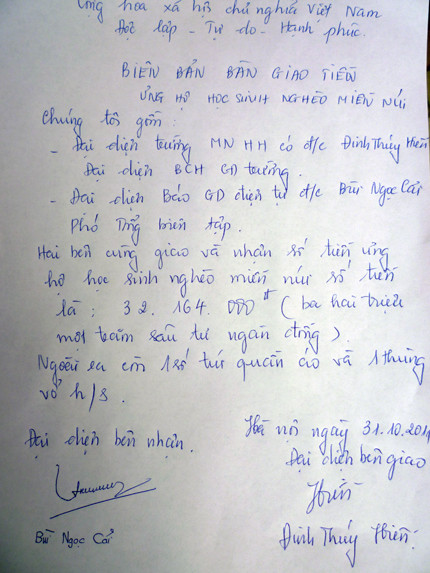 Cộng hòa xã hội chủ nghĩa Việt Nam
Độc lập - Tự do - Hạnh phúc.
BIÊN BẢN BÀN GIAO TIỀN
ỦNG HỘ HỌC SINH NGHÈO MIỀN NÚI
Chúng tôi gồm :
- Đại diện trường MN HH có đ/c Đinh Thúy Hiền
Đại diện BCH CĐ trường.
- Đại diện Báo GD điện tử đ/c Bùi Ngọc Cải
Phó Tổng biên tập.
Hai bên cùng giao và nhận số tiền ủng
hộ học sinh nghèo miền núi số tiền
là : 32.164.000đ (ba hai triệu
một trăm sáu tư ngàn đồng).
Ngoài ra còn 1 số túi quần áo và 1 thùng
vở h/s.
Hà nội ngày 31.10.201
Đại diện bên nhận.
Đại diện bên giao
Hiền
Bùi Ngọc Cải
Đinh Thúy Hiền.